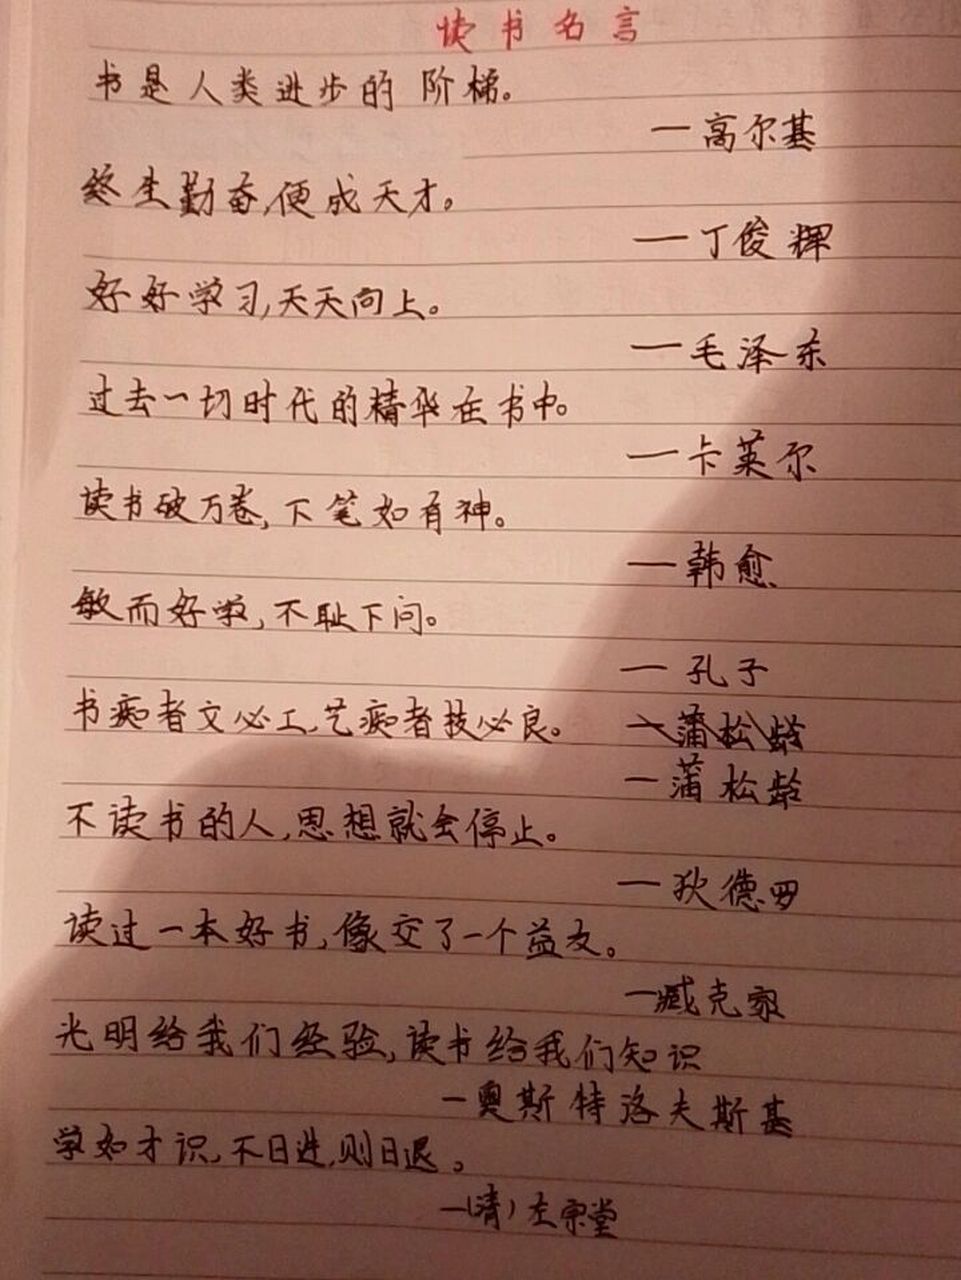 读书名言
书是人类进步的阶梯。
—高尔基
终生勤奋,便成天才。
—丁俊晖
好好学习,天天向上。
—毛泽东
过去一切时代的精华在书中。
—卡莱尔
读书破万卷,下笔如有神。
—韩愈
敏而好学,不耻下问。
—孔子
书痴者文必工,艺痴者技必良。 —蒲松龄
—蒲松龄
不读书的人,思想就会停止。
—狄德罗
读过一本好书,像交了一个益友。
—臧克家
光明给我们经验,读书给我们知识
—奥斯特洛夫斯基
学如才识,不日进,则日退。
—(清)左宗堂